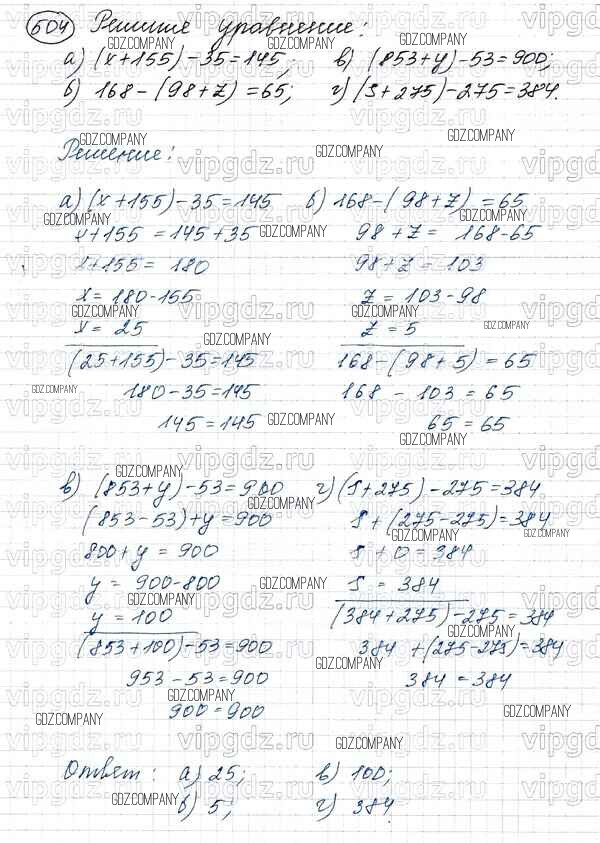 504 Решите уравнение:
а) (x+155)-35=145; в) (853+y)-53=900;
б) 168-(98+z)=65; г) (s+275)-275=384.
Решение:
а) (x+155)-35=145
x+155=145+35
x+155=180
x=180-155
x=25
(25+155)-35=145
180-35=145
145=145
б) 168-(98+z)=65
98+z=168-65
98+z=103
z=103-98
z=5
168-(98+5)=65
168-103=65
65=65
в) (853+y)-53=900
(853-53)+y=900
800+y=900
y=900-800
y=100
(853+100)-53=900
953-53=900
900=900
г) (s+275)-275=384
s+(275-275)=384
s+0=384
s=384
(384+275)-275=384
384+(275-275)=384
384=384
Ответ: а) 25; в) 100;
б) 5; г) 384
GDZ.COMPANY
vipgdz.ru